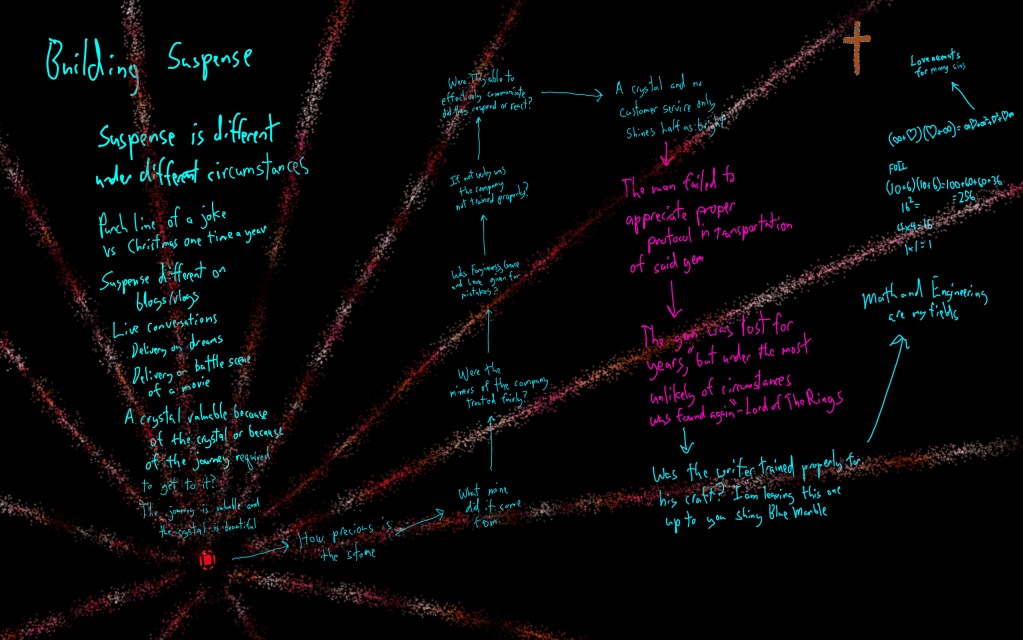 Building Suspense
Suspense is different
under different circumstances
Punch line of a joke
vs Christmas one time a year
Suspense different on
blogs/vlogs
Live conversations
Delivery on dreams
Delivery on battle scene
of a movie
A crystal valuable because
of the crystal or because
of the journey required
to get to it?
The journey is valuable and
the crystal is beautiful
How precious is
the stone
What mine
did it come
from
Were the
miners of the company
treated fairly?
Was Forgiveness/Grace
and Love given for
mistakes?
If not why was
the company
not trained properly?
Were They able to
effectively communicate
did they respond or react?
A crystal and no
customer service only
shines half as bright
The man failed to
appreciate proper
protocol in transportation
of said gem
The gem was lost for
years, "but under the most
unlikely of circumstances
was found again" - Lord of The Rings
Was the writer trained properly for
his craft? I am leaving this one
up to you shiny Blue Marble
Math and Engineering
are my fields
FOIL
(10+6)(10+6)=100+60+60+36
16²= =256
4x4=16
1x1=1
(∞+♡)(♡+∞)=∞♡+∞²+♡²+♡∞
Love accounts
for many sins